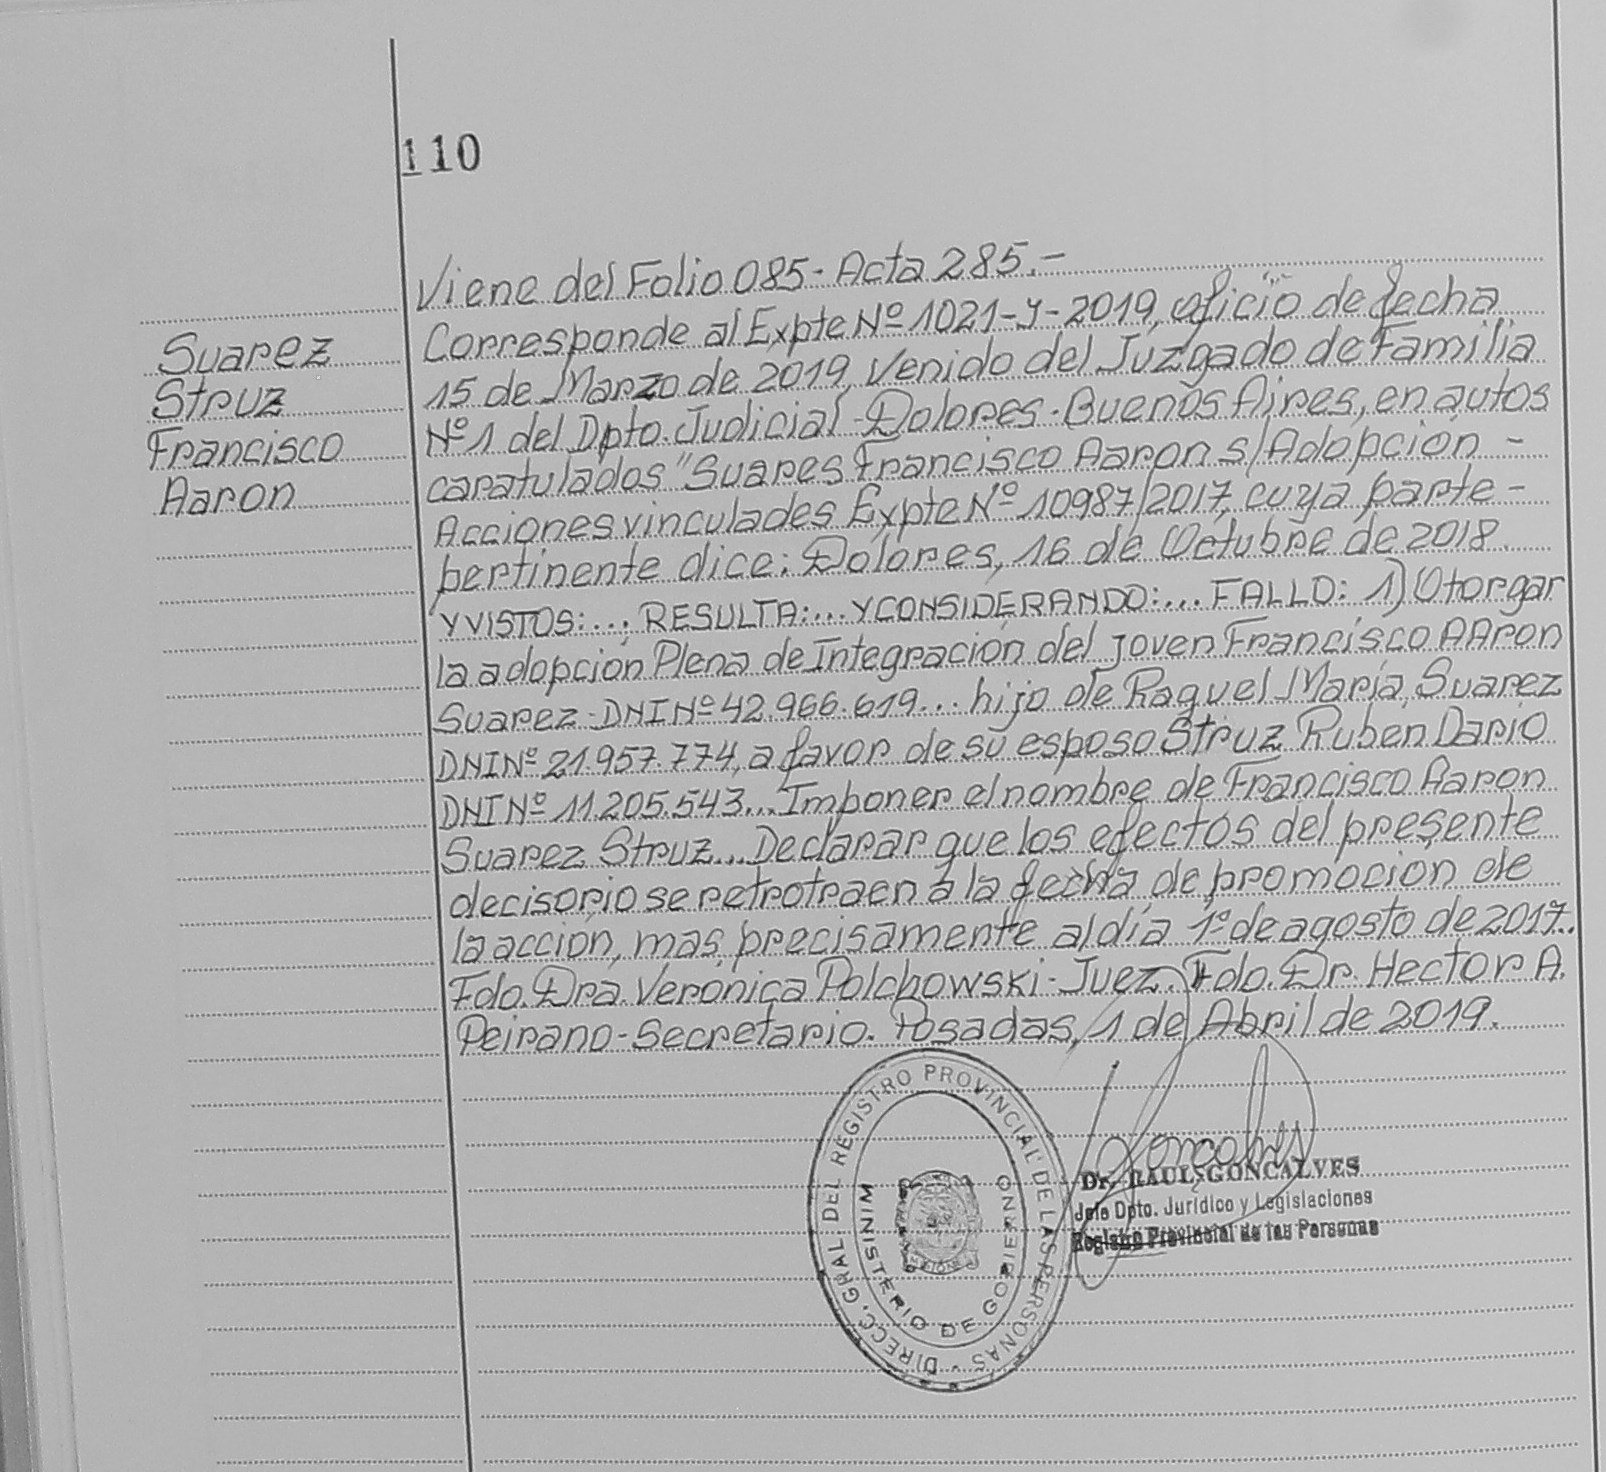 110
Viene del Folio 085- Acta 285.-
Suarez
Struz
Francisco
Aaron
Corresponde al Expte Nº 1021-Y-2019, oficio de fecha
15 de Marzo de 2019, Venido del Juzgado de Familia
Nº 1 del Dpto. Judicial - Dolores - Buenos Aires, en autos
caratulados "Suares Francisco Aaron s/Adopción -
Acciones vinculades Expte Nº 10987/2017, cuya parte -
pertinente dice: Dolores, 16 de Octubre de 2018.
Y VISTOS:... RESULTA:... Y CONSIDERANDO:... FALLO: 1) Otorgar
la adopción Plena de Integración del joven Francisco AAron
Suarez - DNI Nº 42.966.619... hijo de Raquel María Suarez
DNI Nº 21.957.774, a favor de su esposo Struz Ruben Dario
DNI Nº 11.205.543... Imponer el nombre de Francisco Aaron
Suarez Struz... Declarar que los efectos del presente
decisorio se retrotraen a la fecha de promoción de
la acción, mas precisamente al día 1º de agosto de 2017.
Fdo. Dra. Veronica Polchowski - Juez. Fdo. Dr. Hector A.
Peirano - Secretario. Posadas, 1 de Abril de 2019.
DIRECC. GRAL. DEL REGISTRO PROVINCIAL DE LAS PERSONAS
MINISTERIO DE GOBIERNO
Dr. RAUL GONCALVES
Jefe Dpto. Jurídico y Legislaciones
Registro Provincial de las Personas